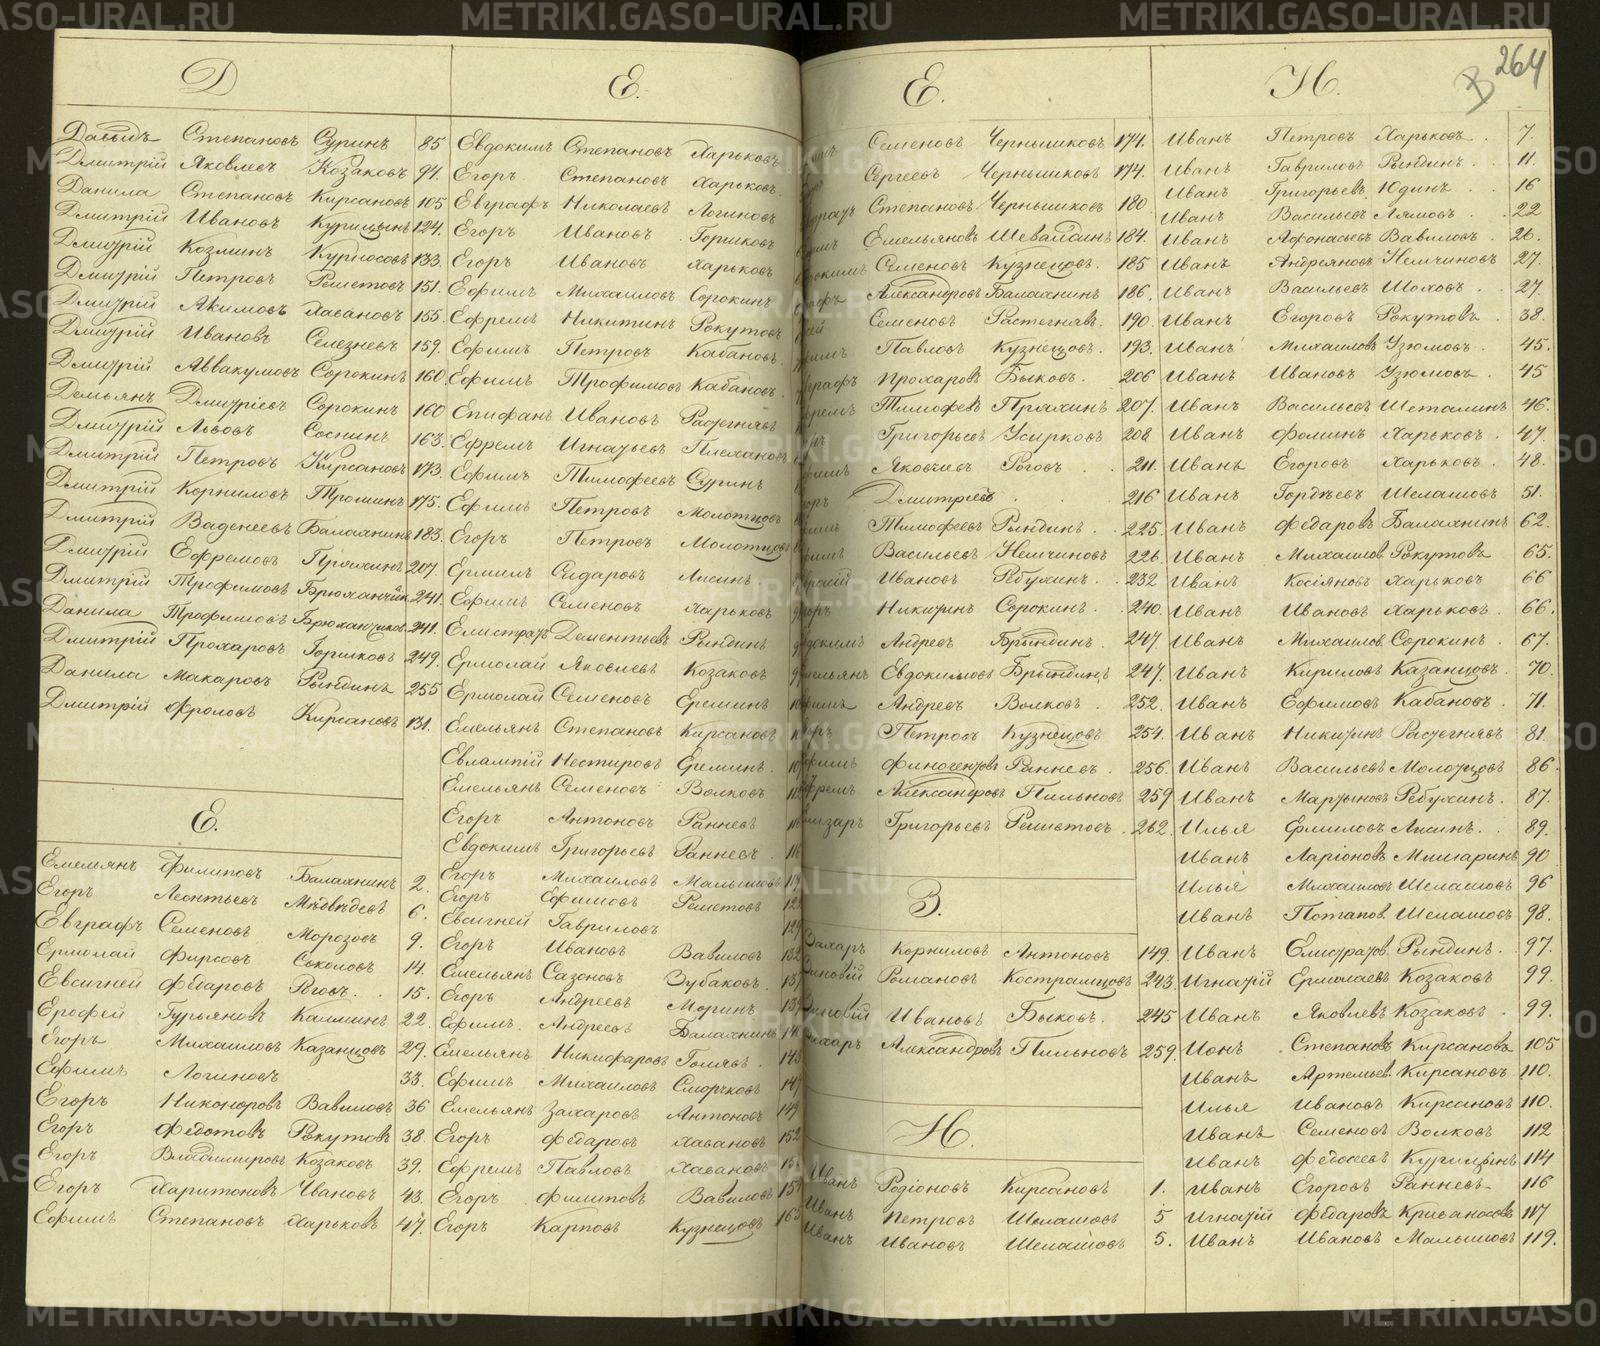 METRIKI.GASO-URAL.RU
264
Д
Давыдъ Степановъ Суринъ 85
Дмитрій Яковлевъ Козаковъ 94.
Данила Степановъ Кирсановъ 105
Дмитрій Ивановъ Курицынъ 124.
Дмитрій Козминъ 133.
Дмитрій Петровъ Решетовъ 151.
Дмитрій Акимовъ Хавановъ 155.
Дмитрій Ивановъ Селезневъ 159.
Дмитрій Аввакумовъ Сорокинъ 160
Демьянъ Дмитріевъ Сорокинъ 160
Дмитрій Львовъ Соснинъ 163.
Дмитрій Петровъ Кирсановъ 173.
Дмитрій Корниловъ Трошинъ 175.
Дмитрій Ваденеевъ Балахнинъ 183.
Дмитрій Ефремовъ Пряхинъ 207.
Дмитрій Трофимовъ 241.
Данила Трофимовъ 241.
Дмитрій Прохаровъ Горшковъ 249.
Данила Макаровъ Рындинъ 255
Дмитрій Фроловъ Кирсановъ 131.
Е.
Емельянъ Филиповъ Балахнинъ 2.
Егоръ Леонтьевъ Мѣдвѣдевъ 6.
Евграфъ Семеновъ Морозовъ 9.
Ермолай Фирсовъ Соколовъ 14.
Евсигней Федаровъ Роговъ. 15.
Ерофей Гурьяновъ Калининъ 22.
Егоръ Михаиловъ Казанцовъ 29.
Ефимъ Логиновъ 33.
Егоръ Никоноровъ Вавиловъ 36
Егоръ Федотовъ Рокутовъ 38.
Егоръ Владимировъ Козаковъ 39.
Егоръ Харитоновъ Ивановъ 43.
Ефимъ Степановъ Харьковъ 47.
Е.
Евдокимъ Степановъ Харьковъ
Егоръ Степановъ Харьковъ.
Евграфъ Николаевъ Логиновъ
Егоръ Ивановъ Горшковъ
Егоръ Ивановъ Харьковъ
Ефимъ Михаиловъ Сорокинъ
Ефремъ Никитинъ Рокутовъ
Ефимъ Петровъ Кабановъ
Ефимъ Трофимовъ Кабановъ
Епифанъ Ивановъ Растегняевъ
Ефремъ Игнатьевъ Плехановъ
Ефимъ Тимофеевъ Суринъ
Ефимъ Петровъ Молотцовъ
Егоръ Петровъ Молотцовъ
Ермилъ Сидаровъ Лисинъ
Ефимъ Семеновъ Харьковъ
Елистратъ Дементьевъ Рындинъ
Ермолай Яковлевъ Козаковъ
Ермолай Семеновъ Ереминъ
Емельянъ Степановъ Кирсановъ
Евлампій Нестировъ Ереминъ.
Емельянъ Семеновъ Волковъ
Егоръ Антоновъ Раннев
Евдокимъ Григорьевъ Ранневъ. 116
Егоръ Михаиловъ Малышовъ
Егоръ Ефимовъ Решетовъ
Евсигней Гавриловъ
Егоръ Ивановъ Вавиловъ 132
Емельянъ Сазоновъ Зубаковъ. 137
Егоръ Андреевъ Моринъ 139
Ефимъ. Андреевъ Балахнинъ
Емельянъ Никифаровъ Голяевъ.
Ефимъ Михаиловъ Сморчковъ 147
Емельянъ Захаровъ Антоновъ 149
Егоръ Федаровъ Хавановъ 152
Ефремъ Павловъ Хавановъ
Егоръ Филиповъ Вавиловъ
Егоръ Карповъ Кузнецовъ
Е.
Семеновъ Чернышковъ 174.
Сергеевъ Чернышковъ 174.
Степановъ Чернышковъ 180
Емельяновъ 184.
Семеновъ Кузнецовъ. 185
Александровъ Балахнинъ 186.
Семеновъ Растегняевъ 190.
Павловъ Кузнецовъ. 193.
Прохаровъ Быковъ. 206
Тимофеевъ Пряхинъ 207.
Григорьевъ 208
Яковлевъ Роговъ. 211.
Дмитріевъ 216
Тимофеевъ Рындинъ. 225.
Васильевъ Немчиновъ 226.
Ивановъ Ребухинъ. 232
Никитинъ Сорокинъ. 240.
Андреевъ Брындинъ. 247.
Евдокимовъ Брындинъ 247.
Андреевъ Волковъ. 252.
Петровъ Кузнецовъ 254.
Финогентовъ Ранневъ. 256.
Александровъ Пильновъ 259
Григорьевъ Решетовъ. 262.
З.
Захаръ Корниловъ Антоновъ 149.
Зиновій Романовъ Костромцовъ 243
Зиновій Ивановъ Быковъ. 245
Захаръ Александровъ Пильновъ 259.
И.
Иванъ Родіоновъ Кирсановъ 1.
Иванъ Петровъ Шелашовъ 5
Иванъ Ивановъ Шелашовъ 5.
И.
Иванъ Петровъ Харьковъ. 7.
Иванъ Гавриловъ Рындинъ. 11.
Иванъ Григорьевъ Юдинъ. 16
Иванъ Васильевъ Лямовъ. 22
Иванъ Афонасьевъ Вавиловъ. 26.
Иванъ Андреяновъ Немчиновъ 27.
Иванъ Васильевъ Шоховъ. 27.
Иванъ Егоровъ Рокутовъ. 38.
Иванъ Михаиловъ Изюмовъ. 45.
Иванъ Ивановъ Изюмовъ. 45
Иванъ Васильевъ Шеталинъ 46.
Иванъ Фоминъ Харьковъ. 47.
Иванъ Егоровъ Харьковъ. 48.
Иванъ Гордѣевъ Шелашовъ 51.
Иванъ Федаровъ Балахнинъ 62.
Иванъ Михаиловъ Рокутовъ 65.
Иванъ Косіяновъ Харьковъ 66
Иванъ Ивановъ Харьковъ. 66.
Иванъ Михаиловъ Сорокинъ. 67.
Иванъ Кириловъ Казанцовъ. 70.
Иванъ Ефимовъ Кабановъ. 71.
Иванъ Никитинъ Растегняевъ 81.
Иванъ Васильевъ Молотцовъ 86.
Иванъ Мартыновъ Ребухинъ. 87.
Илья Ермиловъ Лисинъ. 89.
Иванъ Ларіоновъ Мишаринъ 90
Илья Михаиловъ Шелашовъ 96
Иванъ Потаповъ Шелашовъ 98.
Иванъ Елистратовъ Рындинъ. 97.
Игнатій Ермолаевъ Козаковъ 99.
Иванъ Яковлевъ Козаковъ. 99.
Іонъ Степановъ Кирсановъ 105
Иванъ Артемьевъ Кирсановъ 110.
Илья Ивановъ Кирсановъ 110.
Иванъ Семеновъ Волковъ 112
Иванъ Федосеевъ Курицынъ 114
Иванъ Егоровъ Ранневъ 116
Игнатій Федаровъ 117
Иванъ Ивановъ Малышовъ 119.